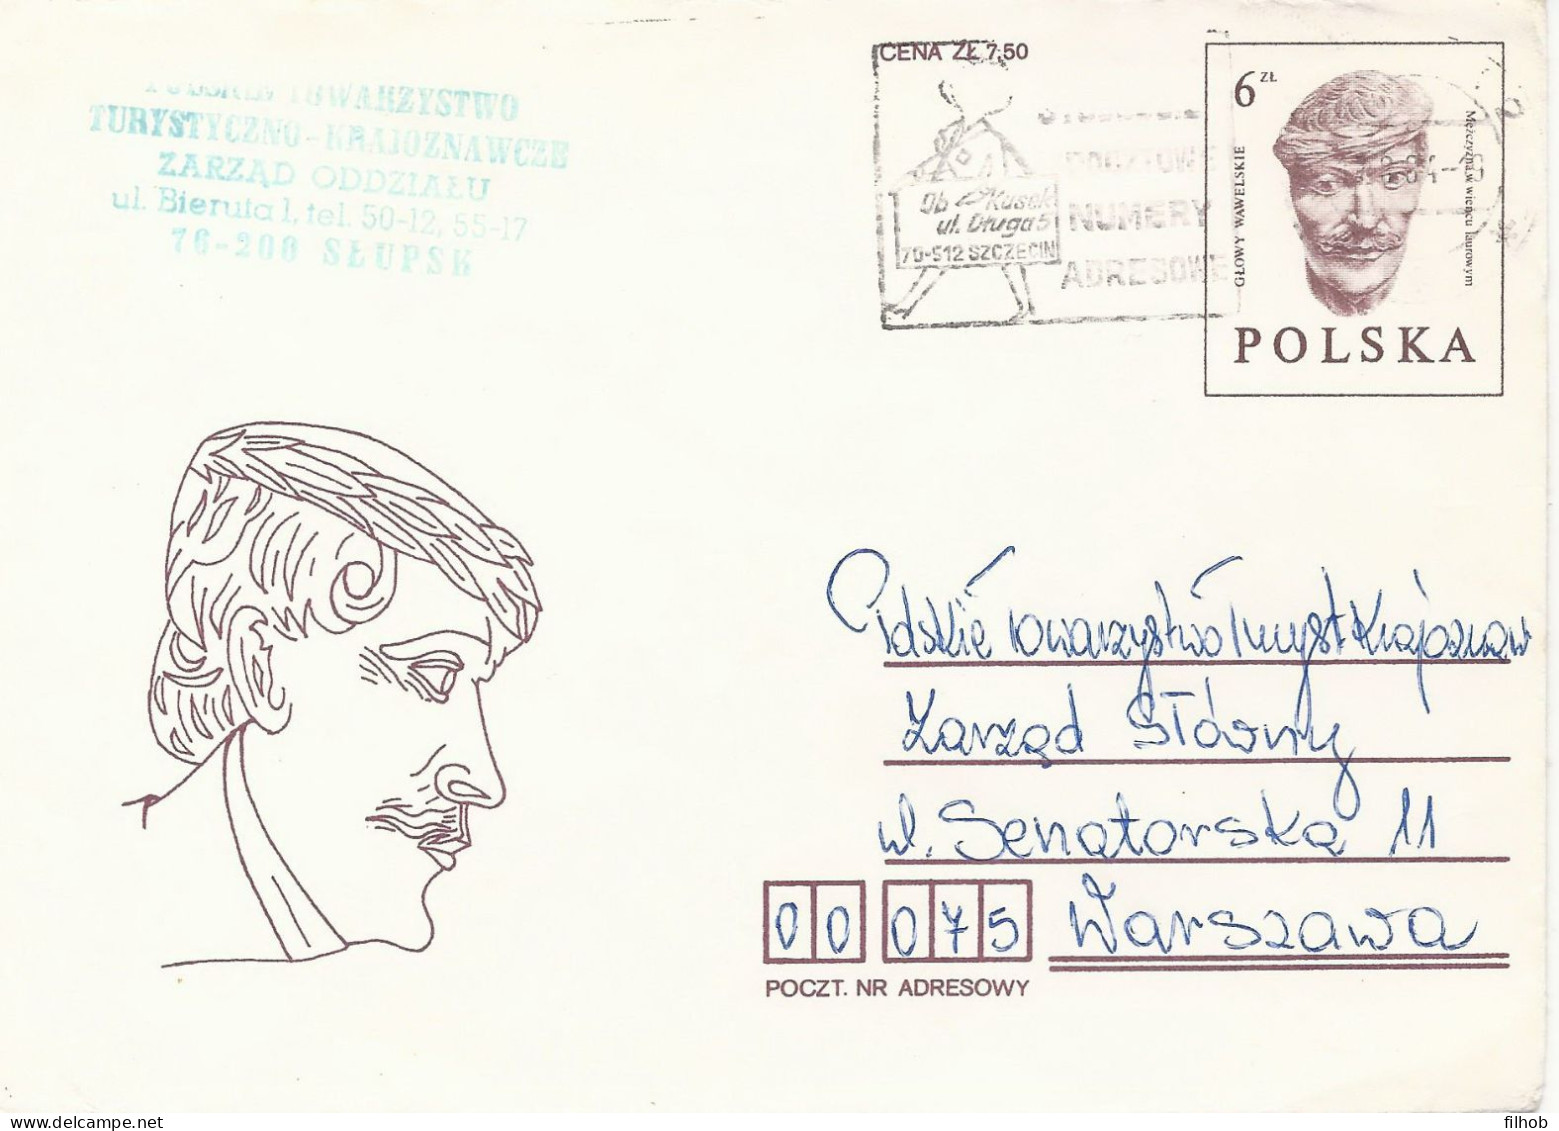 CENA ZŁ 7,50
TOWARZYSTWO
TURYSTYCZNO-KRAJOZNAWCZE
ZARZĄD ODDZIAŁU
ul. Bieruta 1, tel. 50-12, 55-17
76-200 SŁUPSK
Ob Kusek
ul. Długa 5
70-512 SZCZECIN
POCZTOWE
NUMERY
ADRESOWE
6 ZŁ
GŁOWY WAWELSKIE
Mężczyzna w wieńcu laurowym
POLSKA
Polskie Towarzystwo Turyst Krajoznaw
Zarząd Główny
ul. Senatorska 11
00 075 Warszawa
POCZT. NR ADRESOWY
filhob